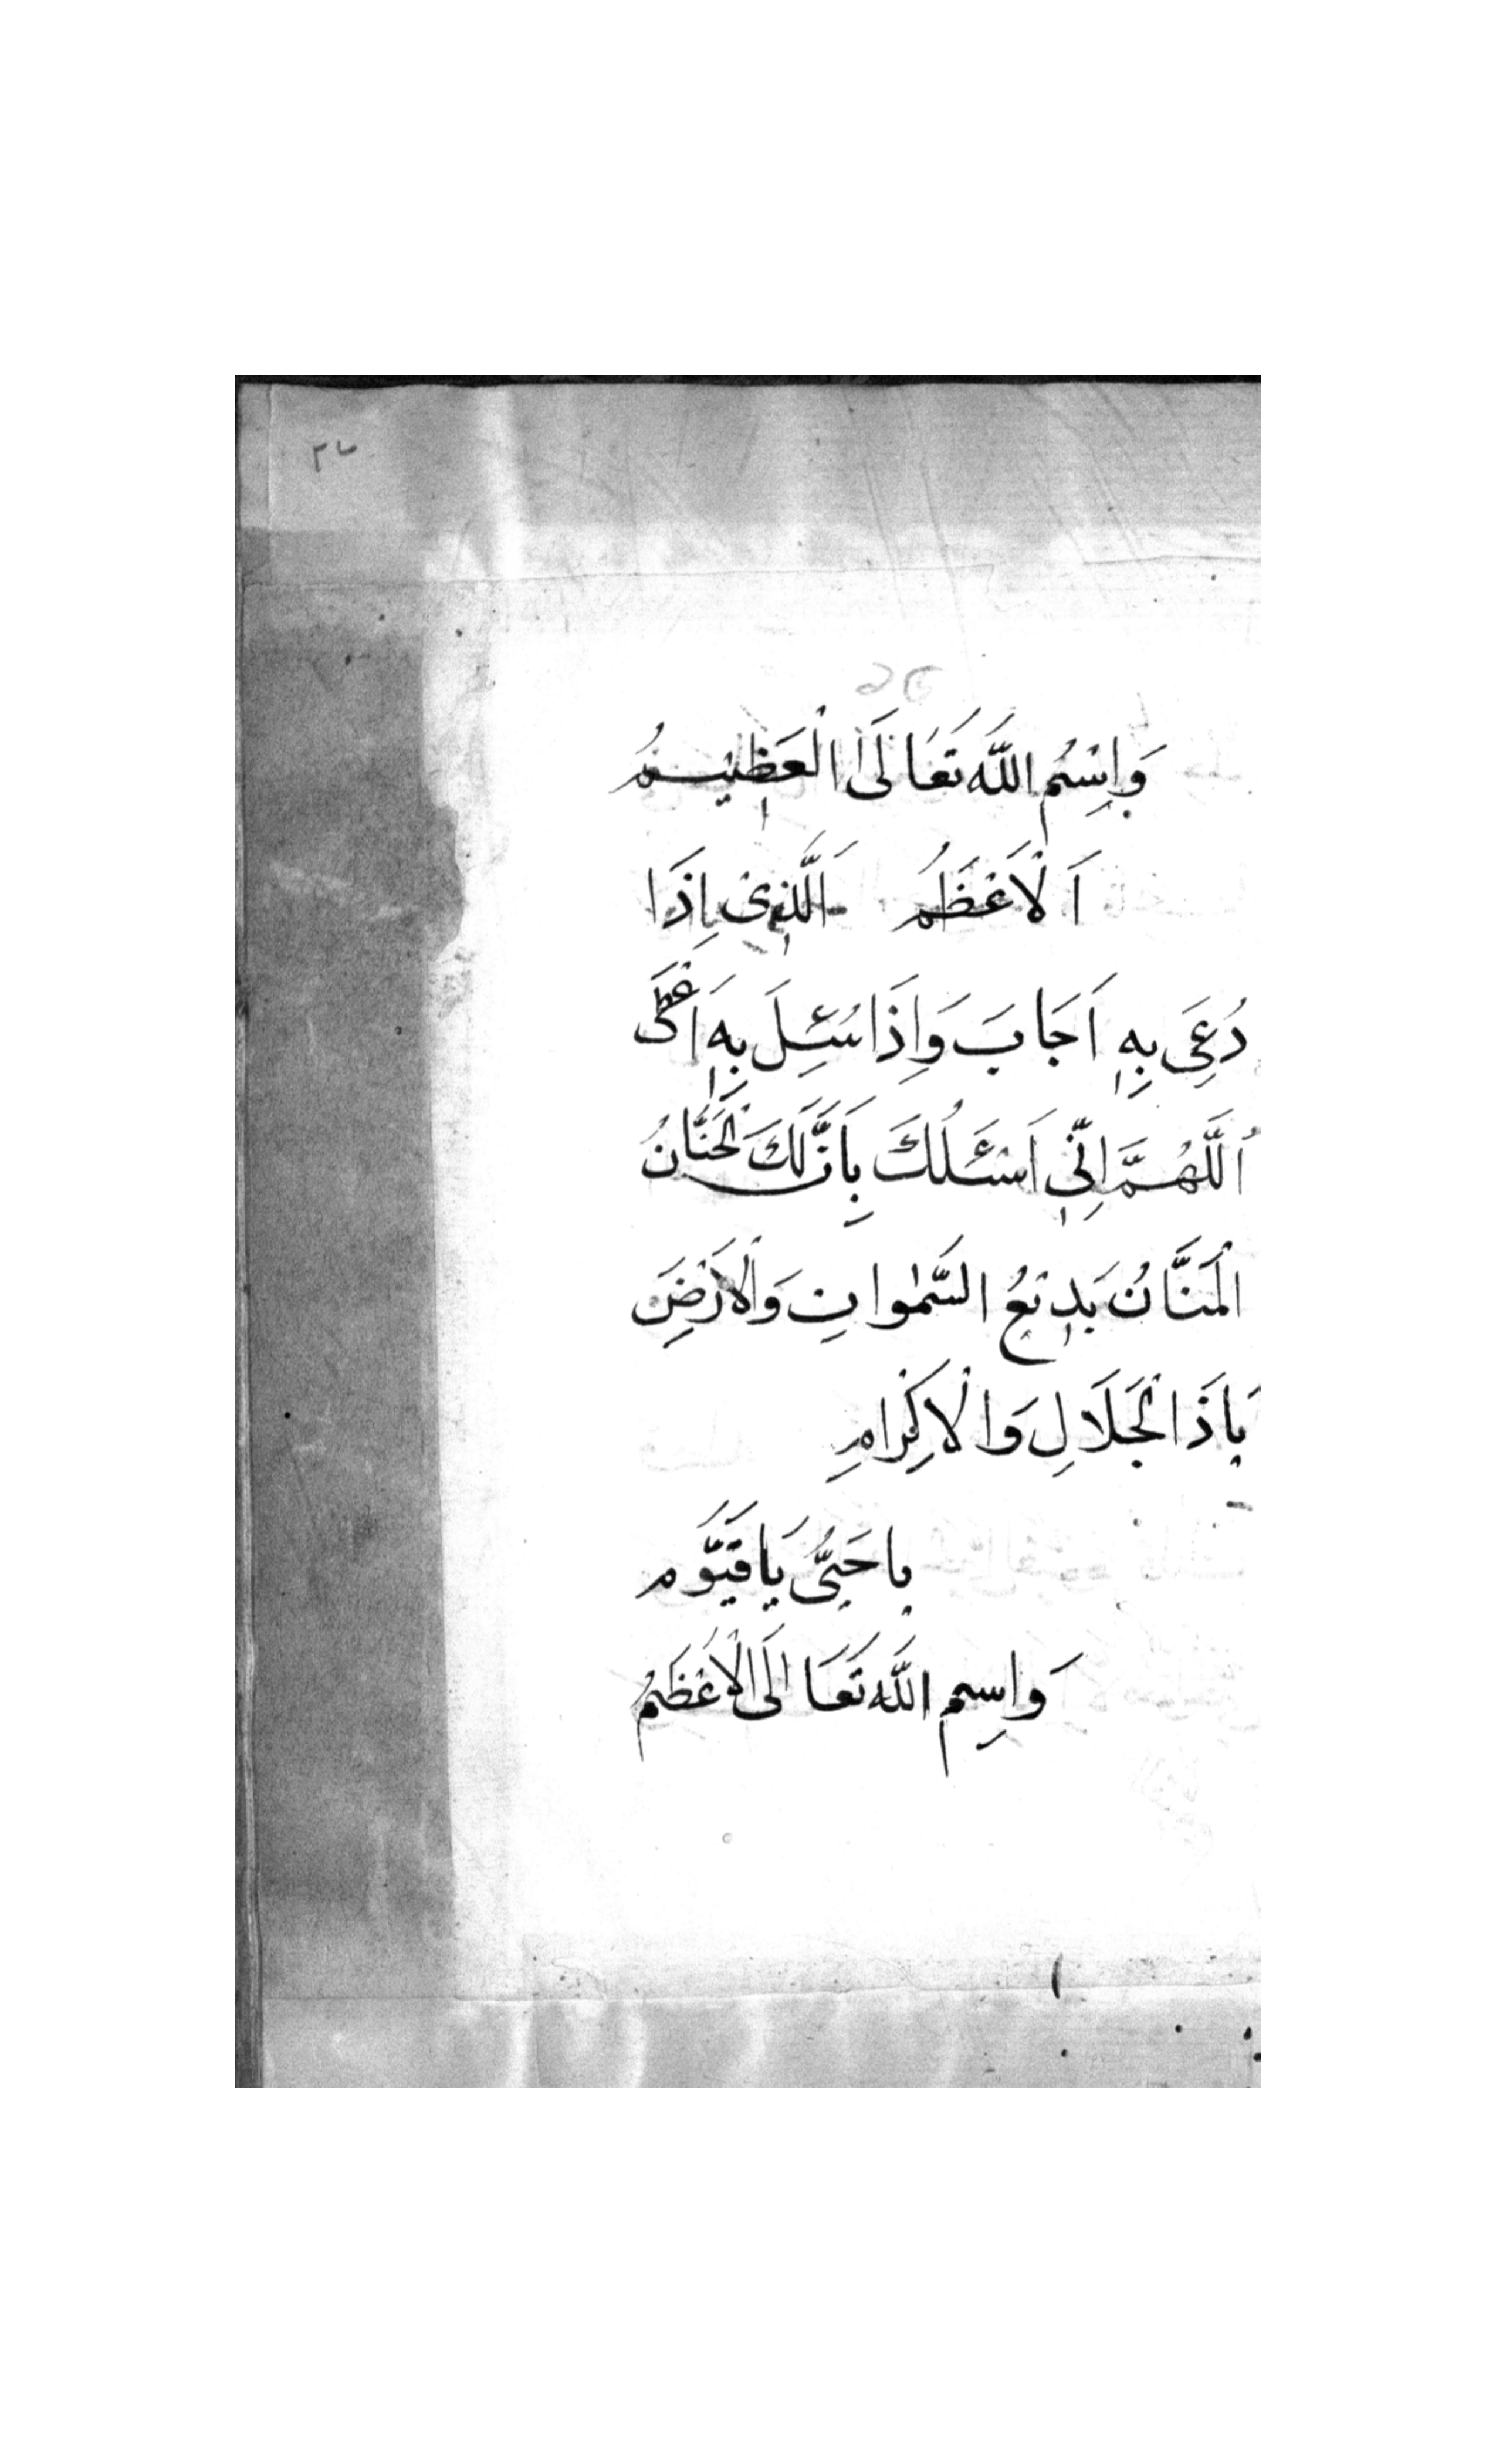 وَاِسْمُ اللّٰهِ تَعَالَى الْعَظِيْمُ
اَلْاَعْظَمُ اَلَّذِىْ اِذَا
دُعِىَ بِهٖ اَجَابَ وَاِذَا سُئِلَ بِهٖ اَعْطَى
اُللّٰهُمَّ اِنِّىْ اَسْئَلُكَ بِاَنَّ لَكَ الْحَنَّانُ
الْمَنَّانُ بَدِيْعُ السَّمٰوَاتِ وَالْاَرْضِ
يَاذَا الْجَلَالِ وَالْاِكْرَامِ
يَا حَىُّ يَا قَيُّوْم
وَاِسِم اللّٰه تَعَالَى الْاَعْظَمُ